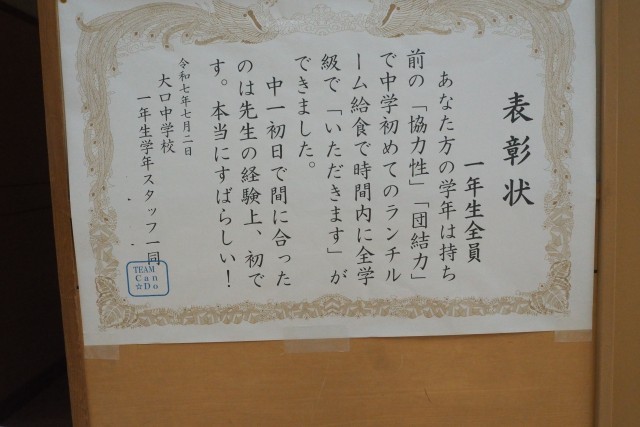 表彰状
一年生全員
あなた方の学年は持ち
前の「協力性」「団結力」
で中学初めてのランチル
ーム給食で時間内に全学
級で「いただきます」が
できました。
中一初日で間に合った
のは先生の経験上、初で
す。本当にすばらしい！
令和七年七月二日
大口中学校
一年生学年スタッフ一同
TEAM
Can
☆Do